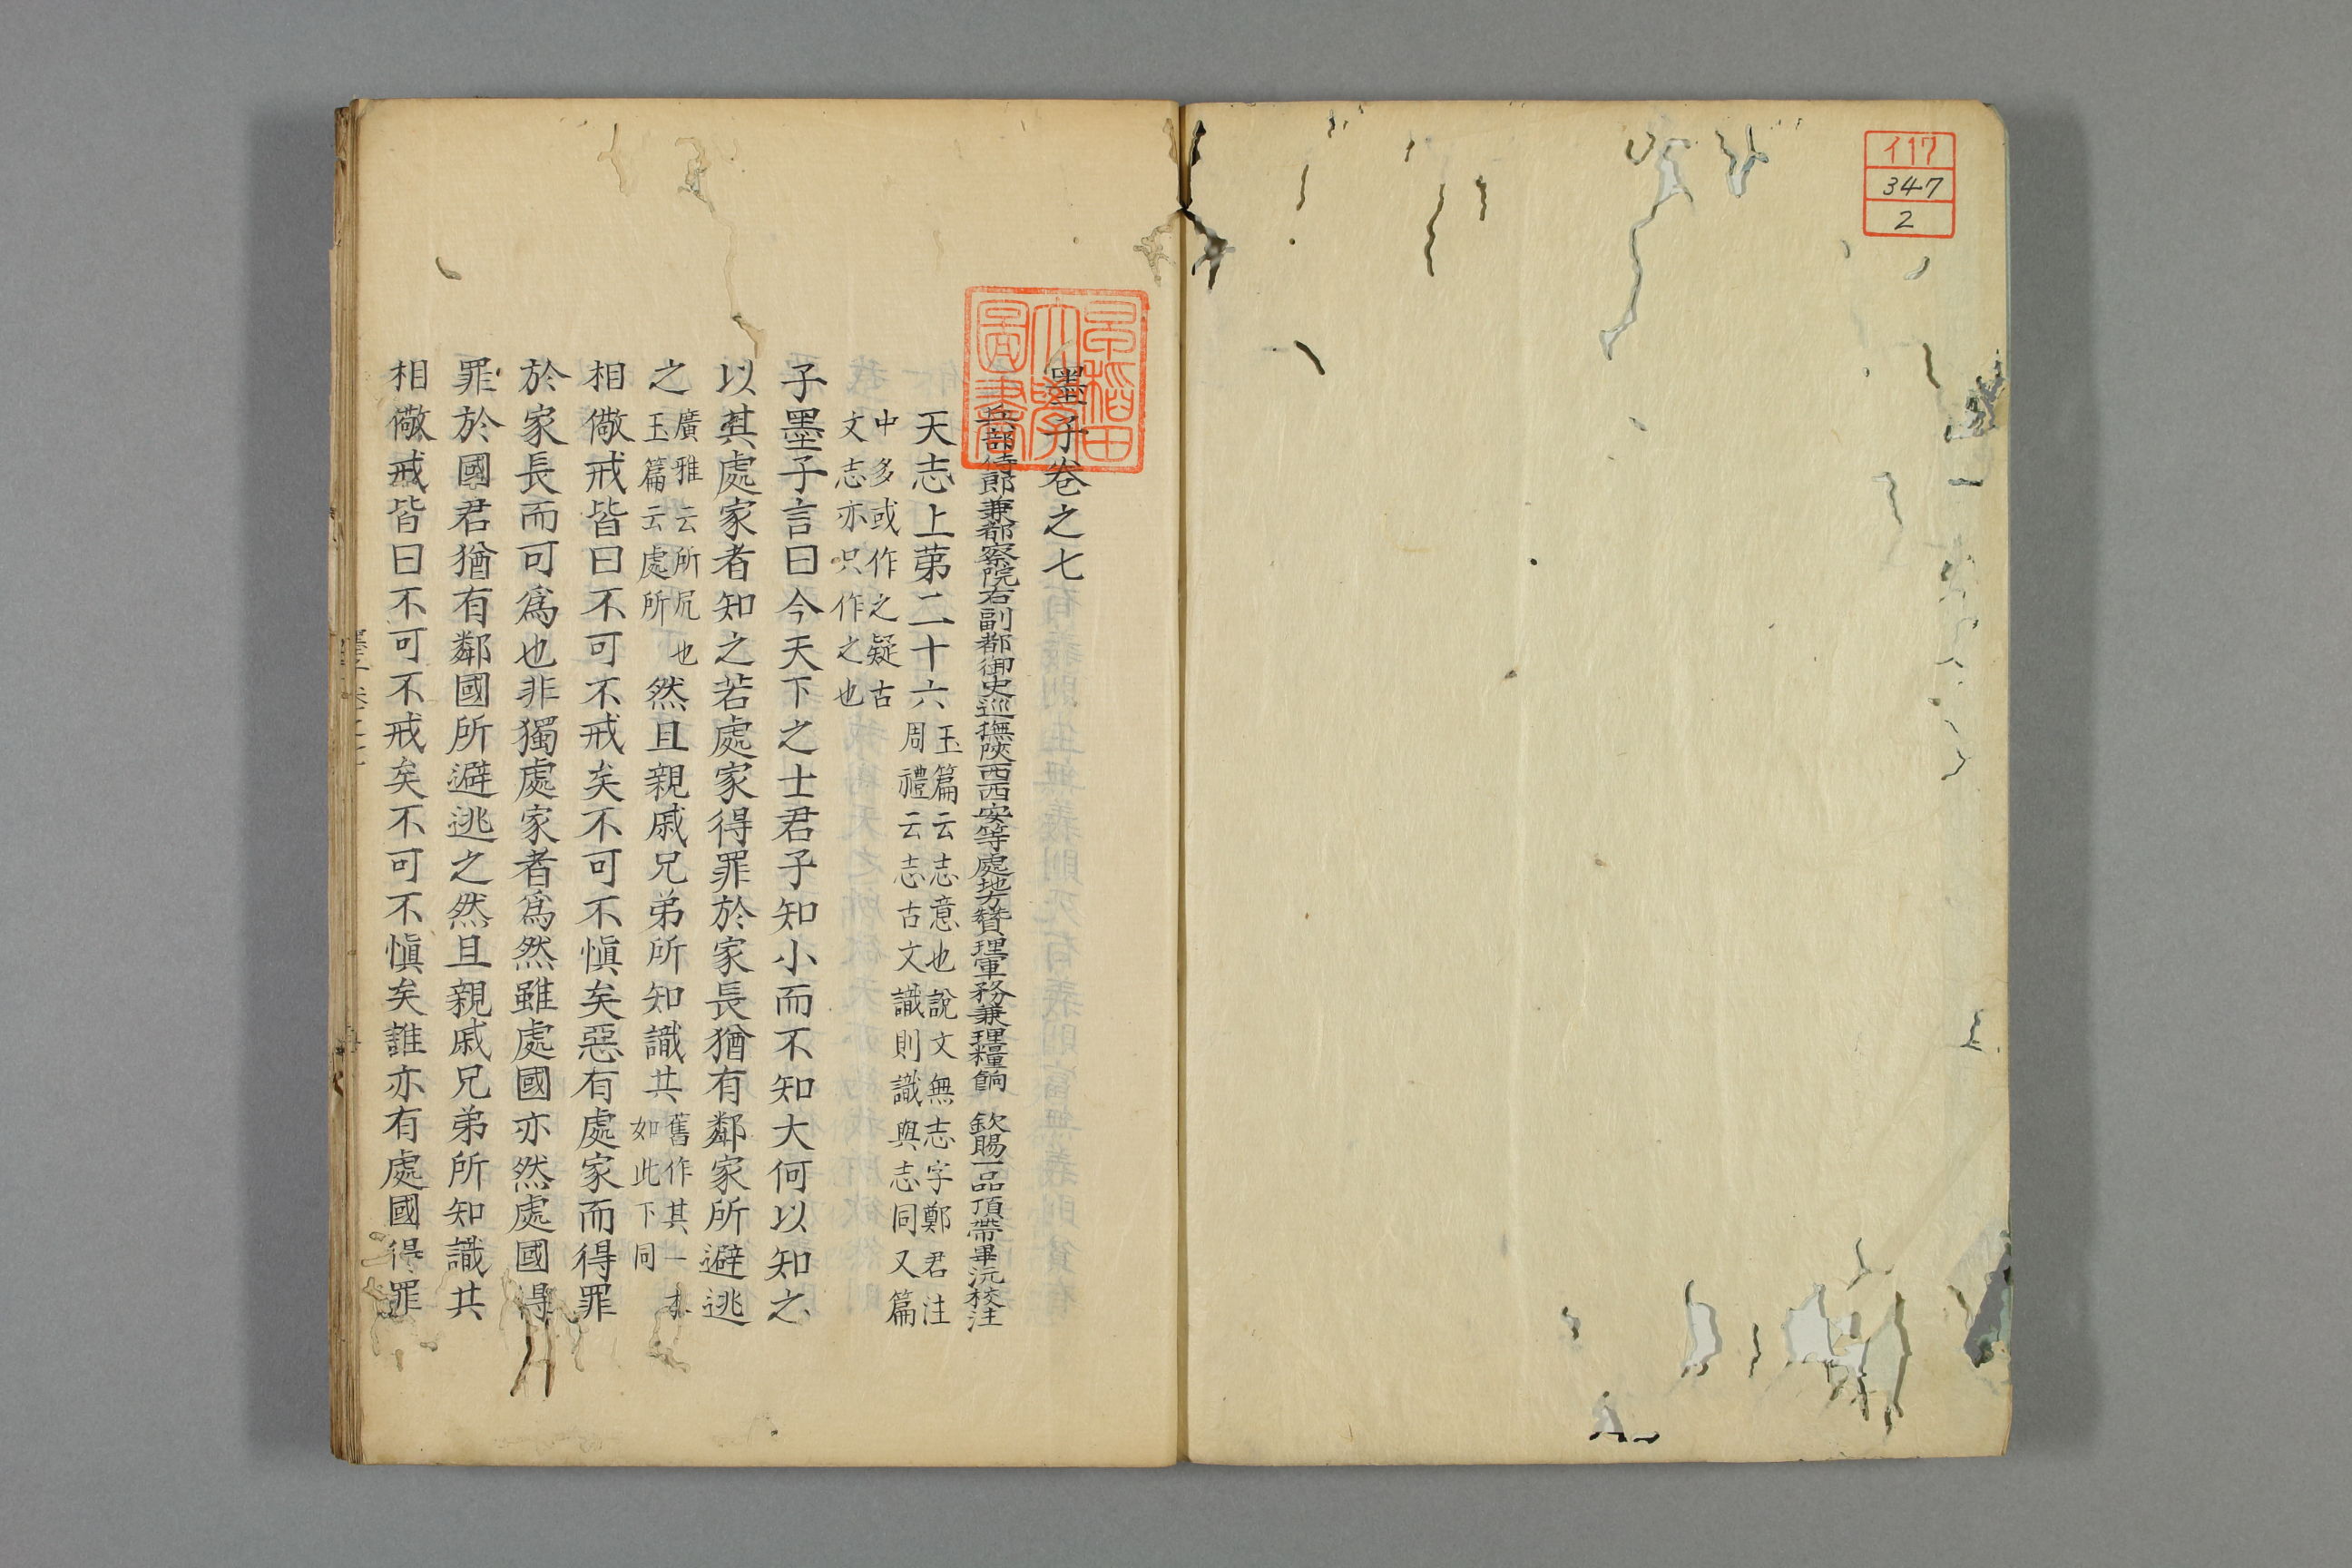 イ17
347
2
早稲田
大學
圖書
墨子卷之七
兵部侍郎兼都察院右副都御史巡撫陝西西安等處地方贊理軍務兼理糧餉 欽賜一品頂帶畢沅校注
天志上第二十六
玉篇云志意也說文無志字鄭君注
周禮云志古文識則識與志同又篇
中多或作之疑古
文志亦只作之也
子墨子言曰今天下之士君子知小而不知大何以知之
以其處家者知之若處家得罪於家長猶有鄰家所避逃
之
廣雅云所尻也
玉篇云處所
然且親戚兄弟所知識共
舊作其一本
如此下同
相儆戒皆曰不可不戒矣不可不愼矣惡有處家而得罪
於家長而可爲也非獨處家者爲然雖處國亦然處國得
罪於國君猶有鄰國所避逃之然且親戚兄弟所知識共
相儆戒皆曰不可不戒矣不可不愼矣誰亦有處國得罪